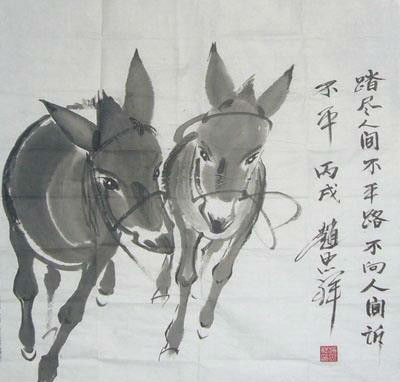 踏尽人间不平路不向人间诉
不平 丙戌
赵忠祥